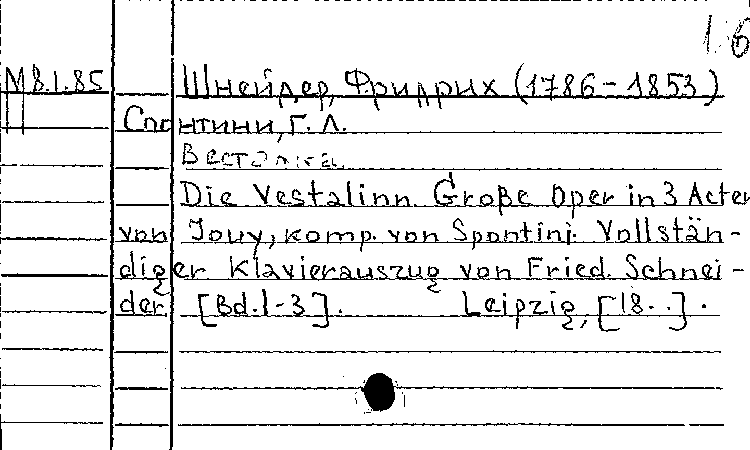 1.6
М 8.1.85 Шнейдер, Фридрих (1786-1853)
Спонтини, Г. Л.
Весталка
Die Vestalinn. Große Oper in 3 Acten
von Jouy, komp. von Spontini. Vollstän-
diger Klavierauszug von Fried. Schnei-
der [Bd. 1-3]. Leipzig, [18..].